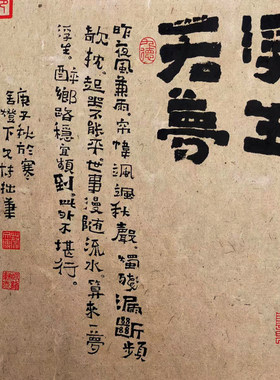 浮生
若夢
昨夜風兼雨，帘幃颯颯秋聲。燭殘漏斷頻
欹枕，起坐不能平。世事漫随流水，算來一夢
浮生。醉鄉路穩宜頻到，此外不堪行。
庚子秋於寒
舍燈下久村拙筆